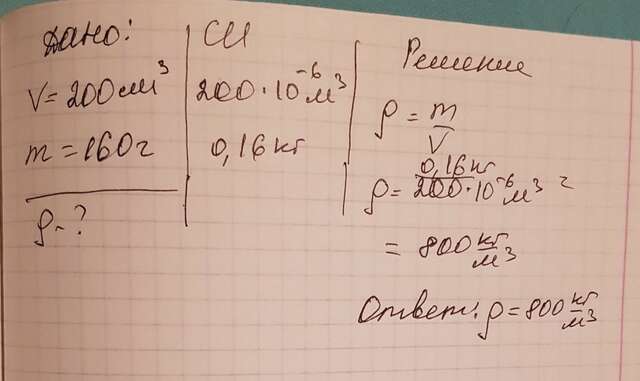 Дано:
V = 200 см³
m = 160 г
ρ - ?
СИ
200 · 10⁻⁶ м³
0,16 кг
Решение
ρ = m/V
ρ = 0,16 кг / 200 · 10⁻⁶ м³ =
= 800 кг/м³
Ответ: ρ = 800 кг/м³